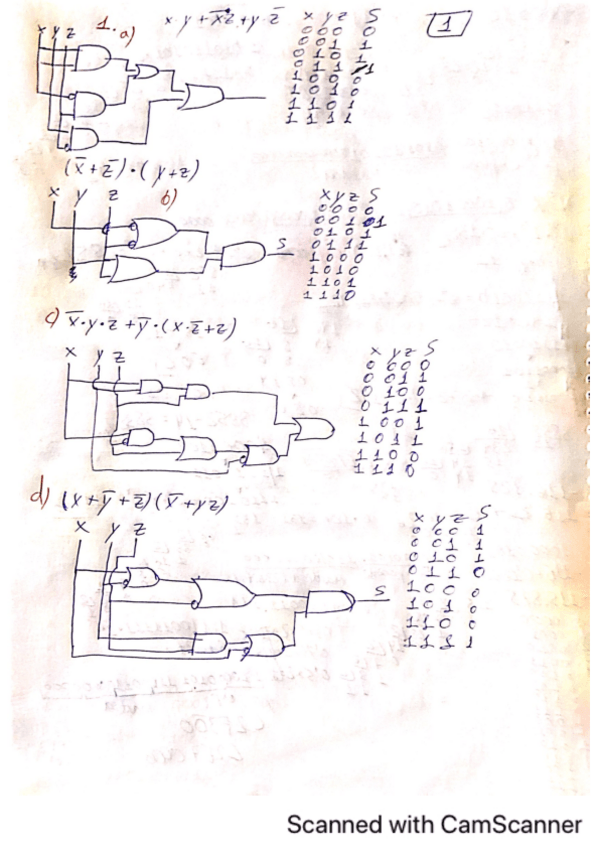 1. a) x y + x̅z̅ + y·z̅
x y z S
0 0 0 0
0 0 1 1
0 1 0 1
1 0 0 0
1 0 1 0
1 1 0 1
1 1 1 1
1
x y z
(x̅+z̅)·(y+z)
b)
x y z
S
x y z S
0 0 0 0
0 0 1 1
0 1 0 1
0 1 1 1
1 0 0 0
1 0 1 0
1 1 0 1
1 1 1 0
c) x̅·y·z + y̅·(x·z̅+z)
x y z
x y z S
0 0 0 0
0 0 1 1
0 1 0 0
0 1 1 1
1 0 0 1
1 0 1 1
1 1 0 0
1 1 1 0
d) (x+y̅+z̅)(x̅+yz)
x y z
S
x y z S
0 0 0 1
0 0 1 1
0 1 0 1
0 1 1 0
1 0 0 0
1 0 1 0
1 1 0 0
1 1 1 1
Scanned with CamScanner